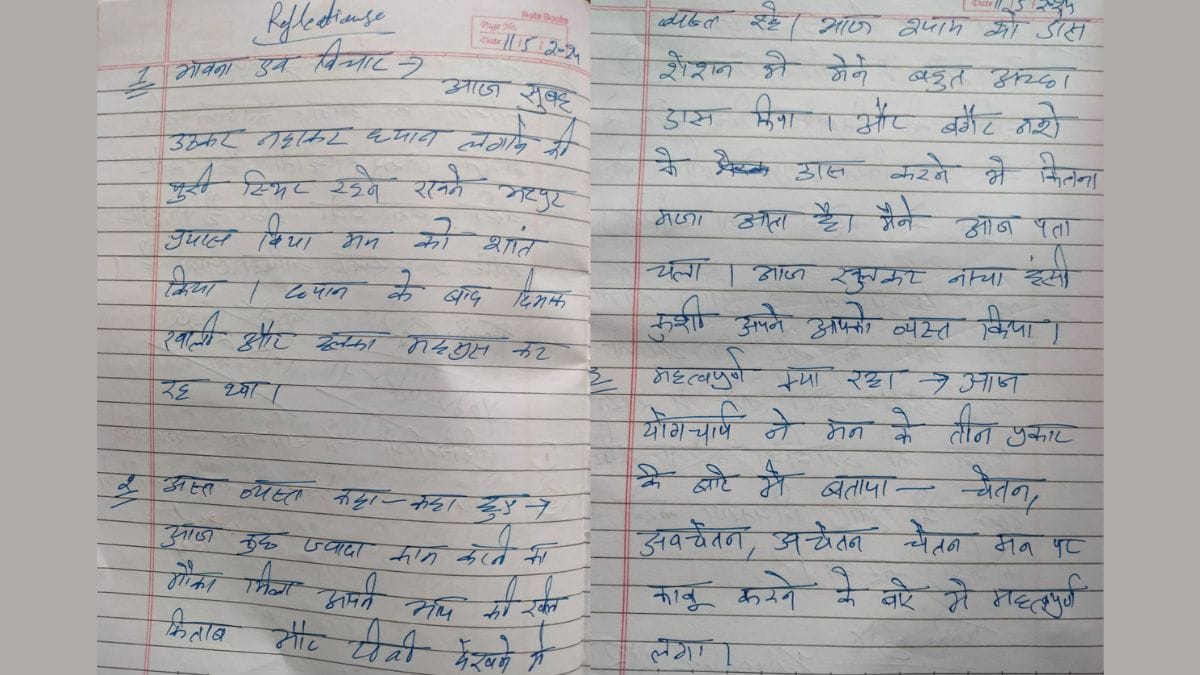 Reflections
Note Books
Page No.
Date 11 5 2024
1 भावना एवं विचार →
आज सुबह
उठकर नहाकर ध्यान लगाने की
पुरी स्थिर रहने भरपुर
प्रयास किया मन को शांत
किया । ध्यान के बाद दिमाक
खाली और हलका महसुस कर
रहा था ।
2 अस्त व्यस्त कहा-कहा हुए →
आज कुछ ज्यादा काम करने का
मौका मिला अपने आप को
किताब और टीवी देखने मे
Date 11 5 2024
व्यस्त रहे । आज श्याम को डास
शेशन मे मैने बहुत अच्छा
डास किया । और बगैर नशे
के डास करने मे कितना
मजा आता है । मैने आज पता
चला । आज खुलकर नाचा हंसी
खुशी अपने आपको व्यस्त किया ।
3 महत्वपुर्ण क्या रहा → आज
योगचार्य ने मन के तीन प्रकार
के बारे मे बताया — चेतन,
अवचेतन, अचेतन चेतन मन पर
काबू करने के बारे मे महत्वपुर्ण
लगा ।